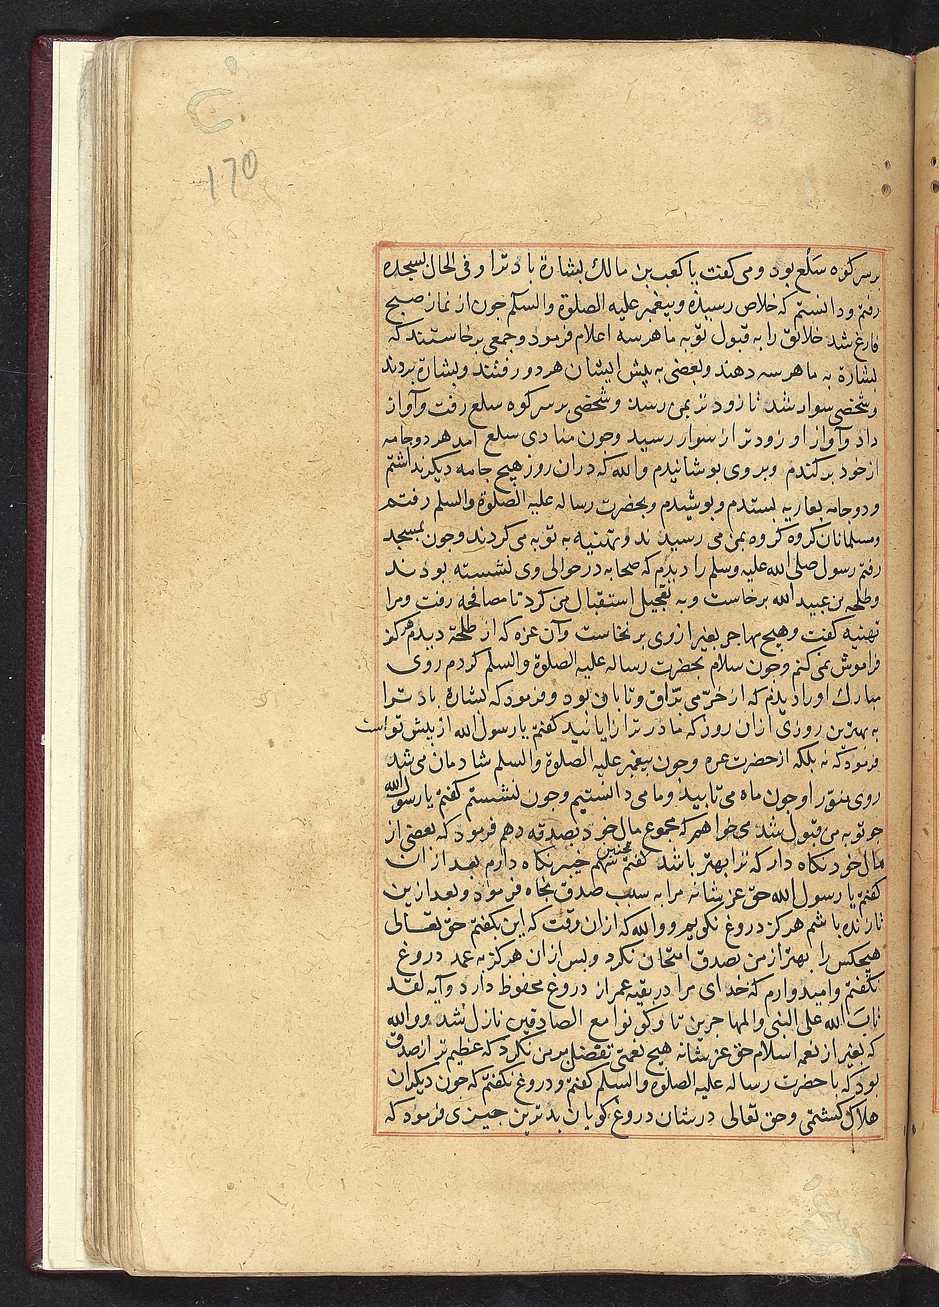 170
بر سر کوه سلع بود و می کفت یا کعب بن مالک بشارة باد ترا و فی الحال بسجده
رفتم و دانستم که خلاص رسیده و پیغمبر علیه الصلوة والسلم جون از نماز صبح
فارغ شد خلائق را به قبول توبه ما هر سه اعلام فرمود و جمعی برخاستند که
بشارة به ما هر سه دهند و بعضی به پیش ایشان هر دو رفتند و بشارة بردند
و شخصی سوار شد تا زودتر بمن رسد و شخصی بر سر کوه سلع رفت و آواز
داد و آواز او زودتر از سوار رسید و جون منادی سلع آمد هر دو جامه
از خود برکندم و بر وی پوشانیدم و الله که دران روز هیچ جامه دیکر نداشتم
و دو جامه بعاریه بستدم و پوشیدم و بحضرت رساله علیه الصلوة والسلم رفتم
و مسلمانان کروه کروه بمن می رسیدند و تهنیه به توبه می کردند و جون بمسجد
رفتم رسول صلی الله علیه وسلم را دیدم که صحابه در حوالی وی نشسته بودند
و طلحه بن عبید الله برخاست و به تعجیل استقبال من کرد تا مصافحه رفت و مرا
تهنیه کفت و هیچ مهاجر بغیر از وی برنخاست و آن عزه که از طلحة دیدم هرکز
فراموش نمی کنم و جون سلام بحضرت رساله علیه الصلوة والسلم کردم روی
مبارک او را دیدم که از خرمی براق و تابان بود و فرمود که بشارة باد ترا
به بهترین روزی ازان روز که مادر ترا زایانید کفتم یا رسول الله از پیش تو است
فرمود که نه بلکه از حضرت عزه و جون پیغمبر علیه الصلوة والسلم شادمان می شد
روی منور او جون ماه می تابید و ما می دانستیم و جون نشستم کفتم یا رسول الله
جو توبه می قبول شد می خواهم که مجموع مال خود بصدقه دهم فرمود که بعضی از
مال خود نکاه دار که ترا بهتر باشد کفتم سهم خیبر نکاه دارم بعد ازان
کفتم یا رسول الله حق عز شانه مرا به سبب صدق نجاه فرمود و بعد ازین
تا زنده باشم هرکز دروغ نکویم و والله که ازان وقت که این بکفتم حق تعالی
هیچکس را بهتر از من بصدق امتحان نکرد و پس ازان هرکز به عمد دروغ
نکفتم و امیدوارم که خدای مرا در بقیه عمر از دروغ محفوظ دارد و آیه لقد
تاب الله علی النبی والمهاجرین تا و کونوا مع الصادقین نازل شد و والله
که بغیر از نعمه اسلام حق عز شانه هیچ نعمتی تفضل بر من نکرد که عظیم تر از صدق
بود که با حضرت رساله علیه الصلوة والسلم کفتم و دروغ نکفتم که جون دیکران
هلاک کشتمی و حق تعالی در شان دروغ کویان بدترین چیزی فرمود که